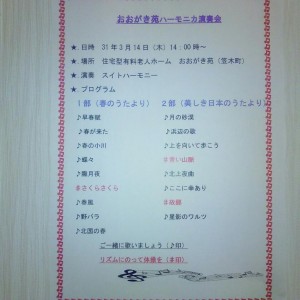 おおがき苑ハーモニカ演奏会
★ 日時 31年3月14日(木)14:00時～
★ 場所 住宅型有料老人ホーム おおがき苑(笠木町)
★ 演奏 スイトハーモニー
★ プログラム
1部(春のうたより) 2部(美しき日本のうたより)
♪早春賦 ♪月の砂漠
♪春が来た ♪浜辺の歌
♪春の小川 ♪上を向いて歩こう
♪蝶々 ♯青い山脈
♪朧月夜 ♪北上夜曲
♯さくらさくら ♪ここに幸あり
♪春風 ♯故郷
♪野バラ ♪星影のワルツ
♪北国の春
ご一緒に歌いましょう(♪印)
リズムにのって体操を(♯印)